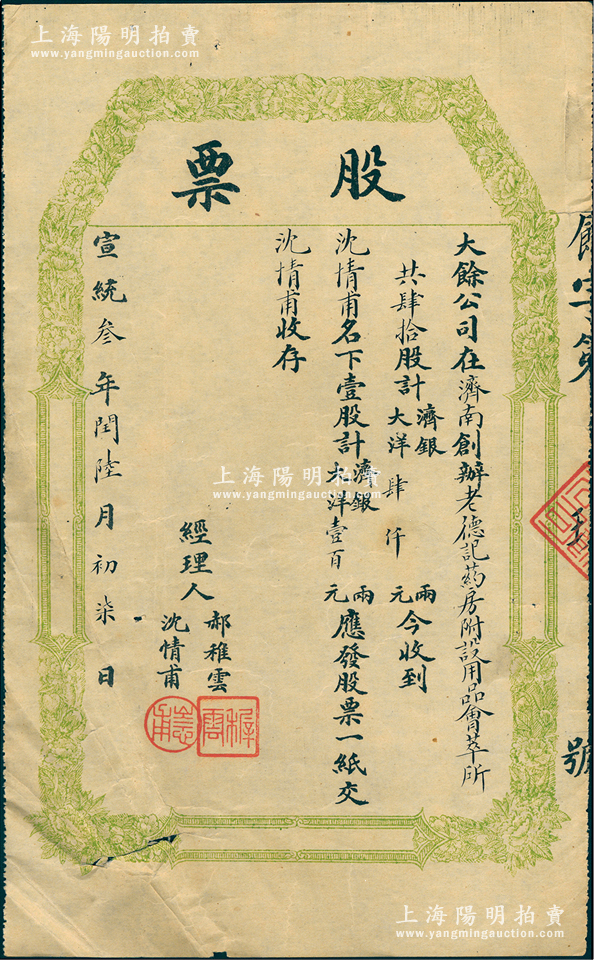 上海陽明拍賣
www.yangmingauction.com
股票
大餘公司在濟南創辦老德記葯房附設用品薈萃所
共肆拾股計濟銀大洋肆仟兩元今收到
沈情甫名下壹股計濟銀大洋壹百兩元應發股票一紙交
沈情甫收存
經理人
郝稚雲
沈情甫
宣統叁年閏陸月初柒日
餘字第
號
上海陽明拍賣
www.yangmingauction.com
上海陽明拍賣
www.yangmingauction.com